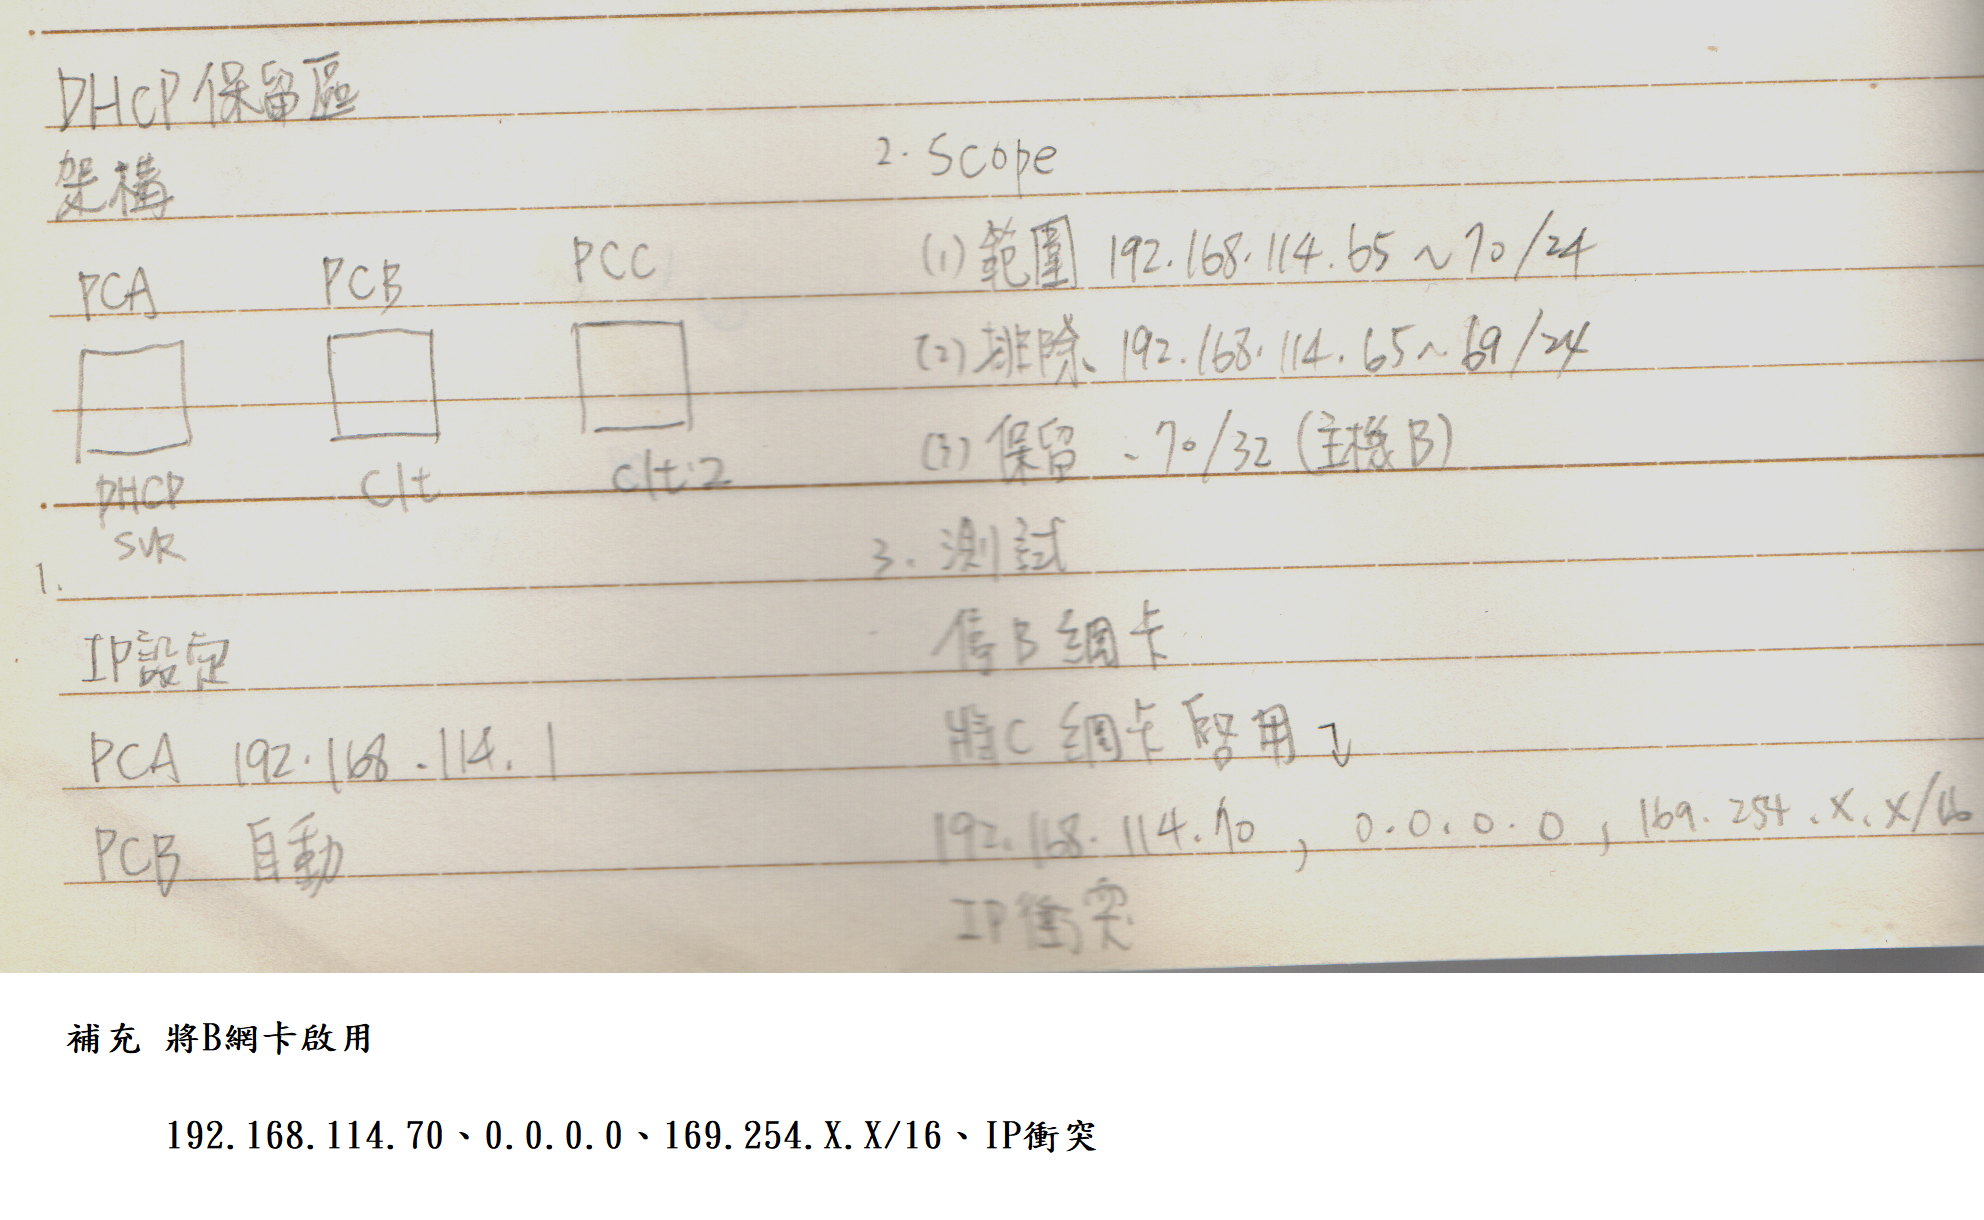 DHCP保留區
架構
PCA PCB PCC
DHCP SVR clt clt2
1.
IP設定
PCA 192.168.114.1
PCB 自動
2. Scope
(1) 範圍 192.168.114.65~70/24
(2) 排除 192.168.114.65~69/24
(3) 保留 .70/32 (主機B)
3. 測試
停B網卡
將C網卡啓用
192.168.114.70, 0.0.0.0, 169.254.X.X/16
IP衝突
補充 將B網卡啟用
192.168.114.70、0.0.0.0、169.254.X.X/16、IP衝突